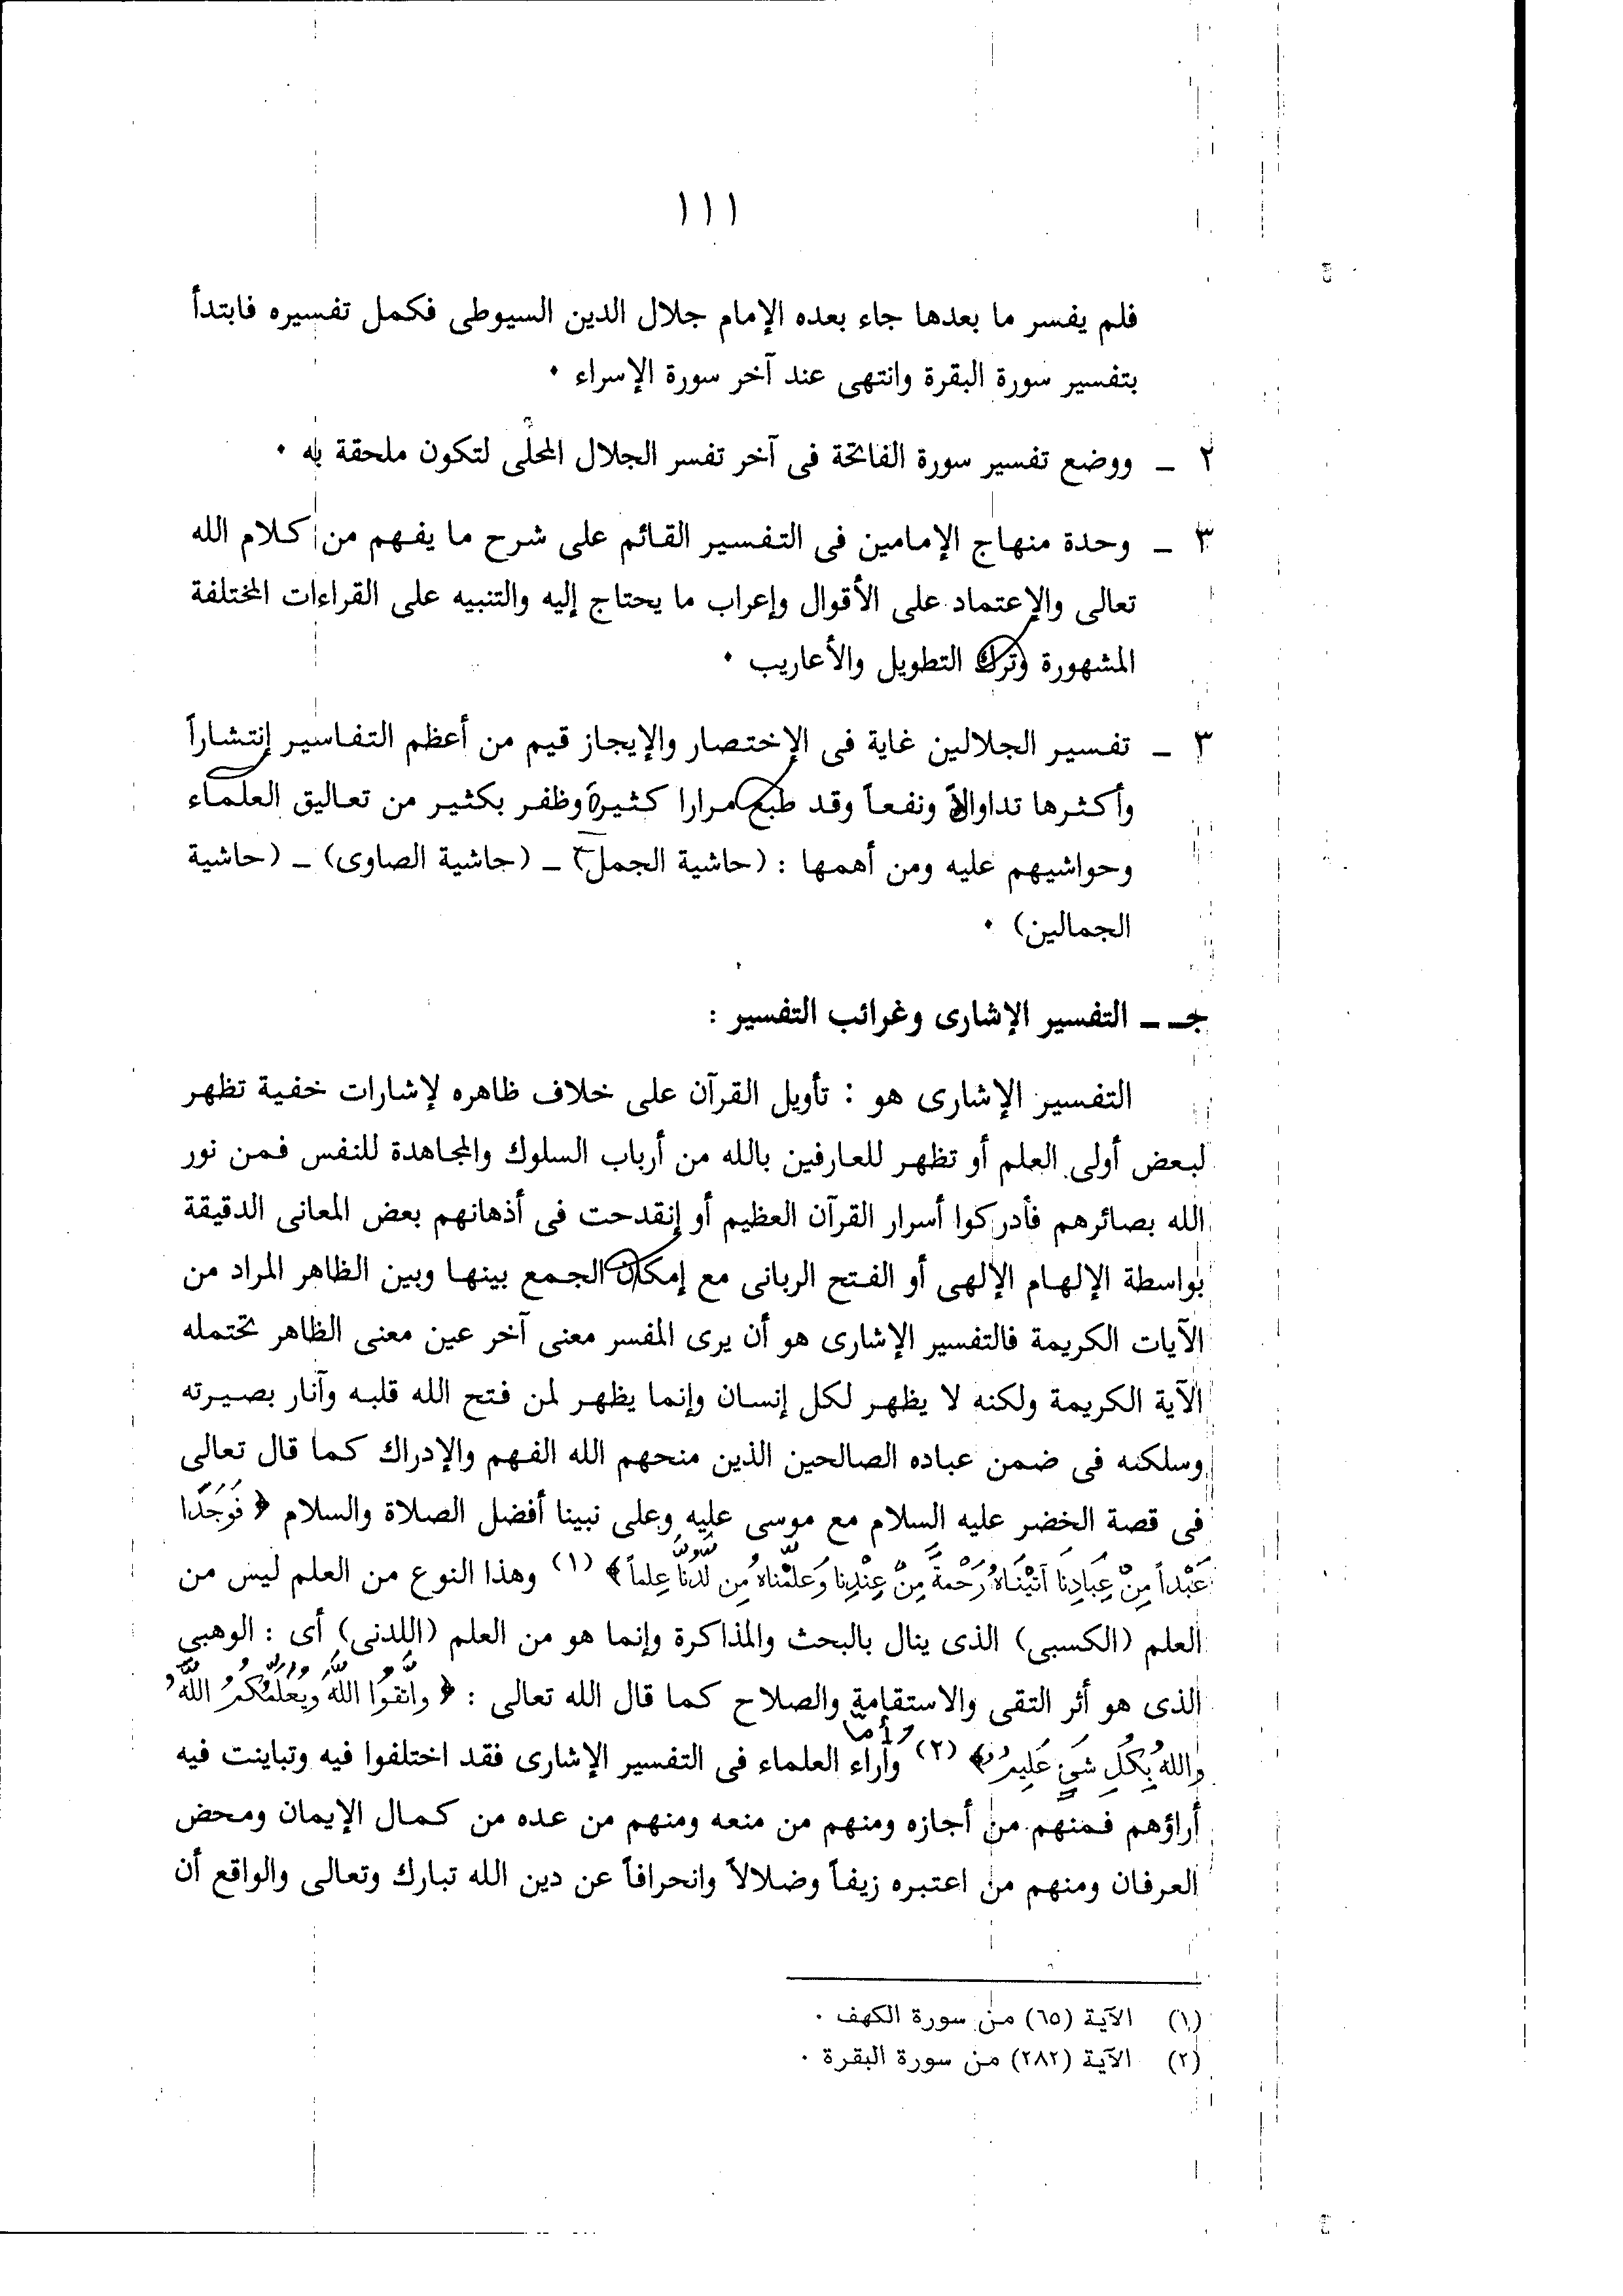 ١١١
فلم يفسر ما بعدها جاء بعده الإمام جلال الدين السيوطى فكمل تفسيره فابتدأ
بتفسير سورة البقرة وانتهى عند آخر سورة الإسراء ٠
٢ ـ ووضع تفسير سورة الفاتحة فى آخر تفسر الجلال المحلى لتكون ملحقة به ٠
٣ ـ وحدة منهاج الإمامين فى التفسير القائم على شرح ما يفهم من كلام الله
تعالى والإعتماد على الأقوال وإعراب ما يحتاج إليه والتنبيه على القراءات المختلفة
المشهورة وترك التطويل والأعاريب ٠
٣ ـ تفسير الجلالين غاية فى الإختصار والإيجاز قيم من أعظم التفاسير إنتشاراً
وأكثرها تداوالاً ونفعاً وقد طبع مرارا كثيرة وظفر بكثير من تعاليق العلماء
وحواشيهم عليه ومن أهمها : (حاشية الجمل) ـ (حاشية الصاوى) ـ (حاشية
الجمالين) ٠
جـ ـ التفسير الإشارى وغرائب التفسير :
التفسير الإشارى هو : تأويل القرآن على خلاف ظاهره لإشارات خفية تظهر
لبعض أولى العلم أو تظهر للعارفين بالله من أرباب السلوك والمجاهدة للنفس فمن نور
الله بصائرهم فأدركوا أسرار القرآن العظيم أو إنقدحت فى أذهانهم بعض المعانى الدقيقة
بواسطة الإلهام الإلهى أو الفتح الربانى مع إمكان الجمع بينها وبين الظاهر المراد من
الآيات الكريمة فالتفسير الإشارى هو أن يرى المفسر معنى آخر عين معنى الظاهر تحتمله
الآية الكريمة ولكنه لا يظهر لكل إنسان وإنما يظهر لمن فتح الله قلبه وآنار بصيرته
وسلكنه فى ضمن عباده الصالحين الذين منحهم الله الفهم والإدراك كما قال تعالى
فى قصة الخضر عليه السلام مع موسى عليه وعلى نبينا أفضل الصلاة والسلام ﴿ فَوَجَدَا
عَبْداً مِنْ عِبَادِنَا آتَيْنَاهُ رَحْمَةً مِنْ عِنْدِنَا وَعَلَّمْنَاهُ مِن لَّدُنَّا عِلماً ﴾ (١) وهذا النوع من العلم ليس من
العلم (الكسبى) الذى ينال بالبحث والمذاكرة وإنما هو من العلم (اللدنى) أى : الوهبى
الذى هو أثر التقى والاستقامة والصلاح كما قال الله تعالى : ﴿ واتَّقُوا اللَّهَ وَيُعَلِّمُكُمُ اللَّهُ
وأما
واللهُ بِكُلِ شَيْءٍ عَلِيمٌ ﴾ (٢) وآراء العلماء فى التفسير الإشارى فقد اختلفوا فيه وتباينت فيه
أراؤهم فمنهم من أجازه ومنهم من منعه ومنهم من عده من كمال الإيمان ومحض
العرفان ومنهم من اعتبره زيفاً وضلالاً وانحرافاً عن دين الله تبارك وتعالى والواقع أن
(١) الآية (٦٥) من سورة الكهف ٠
(٢) الآية (٢٨٢) من سورة البقرة ٠